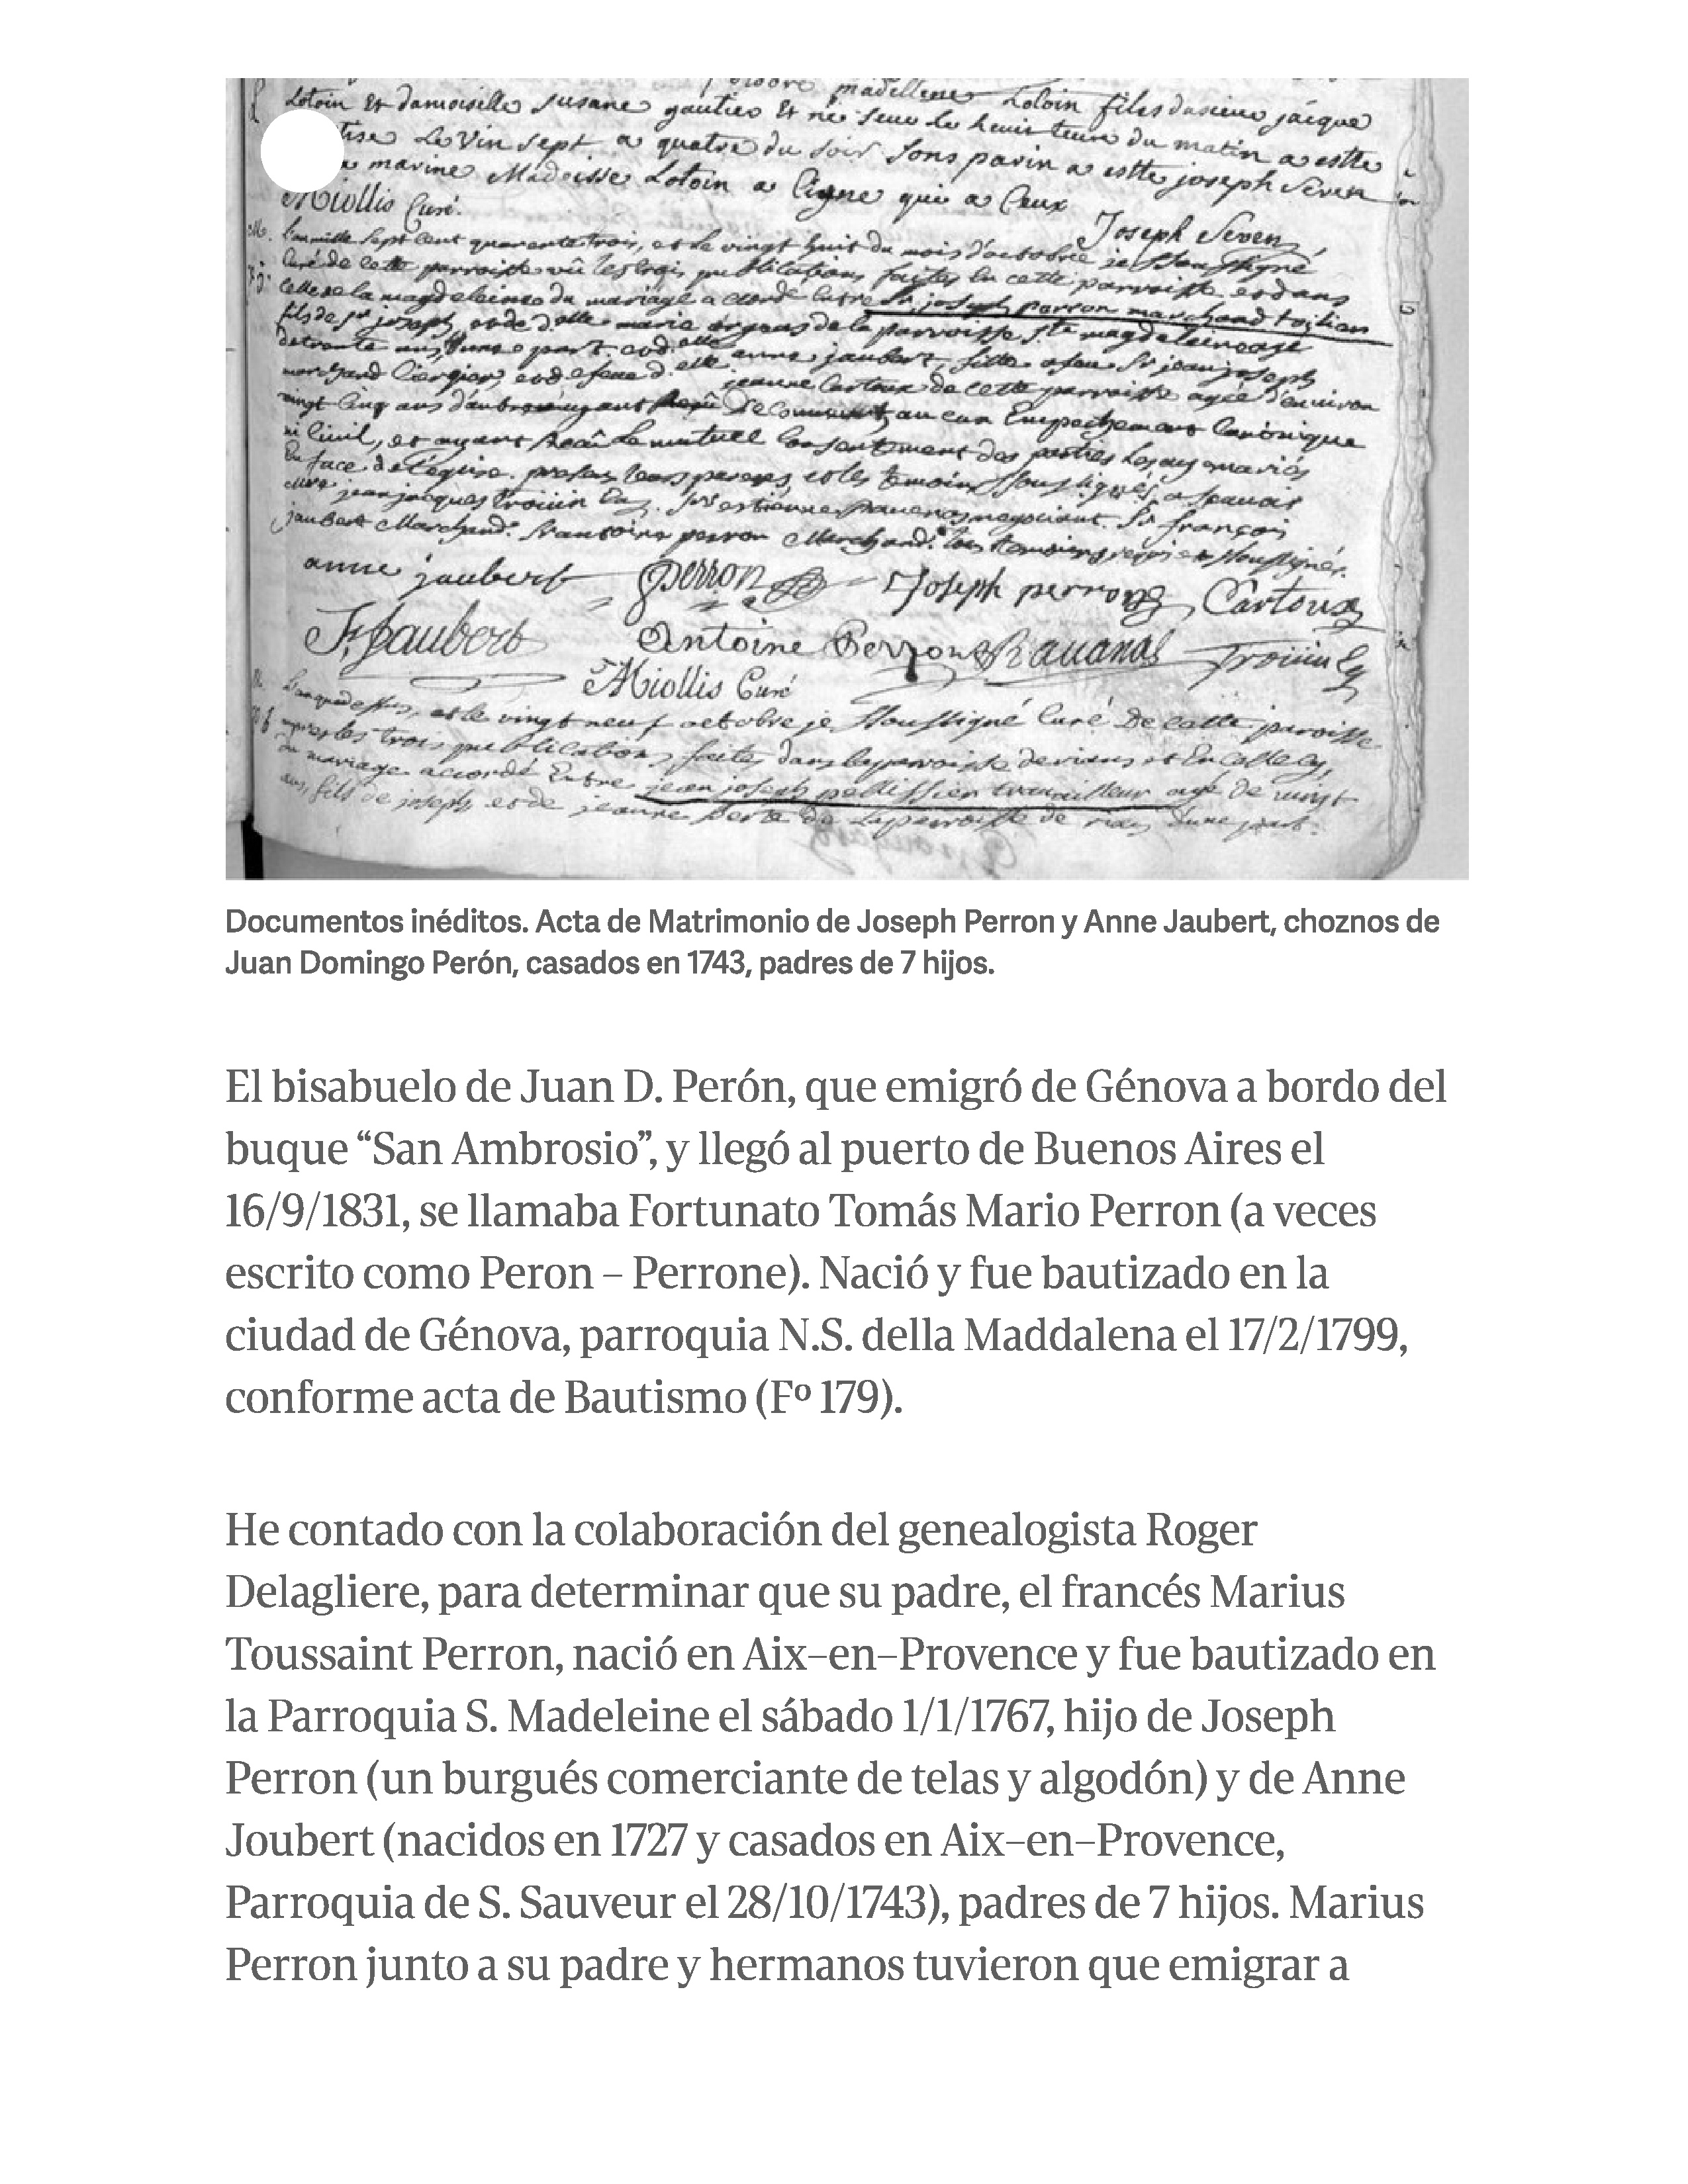 madellene Lotoin fils du sieur jacque
Lotoin Et damoiselle susane gautier Et né seur le heuit teure du matin a estte
Le Vin sept a quatre du soir sons parin a estte joseph Seven
marine Madeisse Lotoin a Cigne qui a Ceux
Joseph Seven
Miollis Curé.
L'an mille sept cent quarente trois, et le vingt huit du mois d'octobre je soussigné
Curé de cette parroisse vû les trois publications faites en cette parroisse et dans
celle de la magdeleine du mariage accordé entre Sr joseph perron marchand toilier
fils de Sr joseph, et de dlle marie de la parroisse Ste magdeleine agé
de trente ans d'une part. et delle anne jaubert, fille a feu Sr jean joseph
marchand Cirgier, et de feue delle jeanne Cartoux de cette parroisse agée d'environ
vingt Cinq ans d'autre aucun Empechement Canonique
ni Civil, et ayant Le mutuel Consentement des parties Les ay mariés
En face de l'église. presens et les temoins soussignés, a scavoir
jean jacques Sr estienne negociant. Sr françois
jaubert Marchand. Sr antoine perron Marchand. tous temoins requis et soussignés.
anne jaubert perron Joseph perron Cartoux
F. Jaubert Antoine Perron Ravanas
Miollis Curé
L'an que dessus, et le vingt neuf octobre je soussigné Curé De cette paroisse
apres les trois publications faites dans la paroisse de rians et En Celle Cy,
du mariage accordé Entre jean joseph pellissier travailleur agé de vingt
ans, fils de joseph, et de jeanne de La parroisse de d'une part.
Documentos inéditos. Acta de Matrimonio de Joseph Perron y Anne Jaubert, choznos de
Juan Domingo Perón, casados en 1743, padres de 7 hijos.
El bisabuelo de Juan D. Perón, que emigró de Génova a bordo del
buque “San Ambrosio”, y llegó al puerto de Buenos Aires el
16/9/1831, se llamaba Fortunato Tomás Mario Perron (a veces
escrito como Peron – Perrone). Nació y fue bautizado en la
ciudad de Génova, parroquia N.S. della Maddalena el 17/2/1799,
conforme acta de Bautismo (Fº 179).
He contado con la colaboración del genealogista Roger
Delagliere, para determinar que su padre, el francés Marius
Toussaint Perron, nació en Aix–en–Provence y fue bautizado en
la Parroquia S. Madeleine el sábado 1/1/1767, hijo de Joseph
Perron (un burgués comerciante de telas y algodón) y de Anne
Joubert (nacidos en 1727 y casados en Aix–en–Provence,
Parroquia de S. Sauveur el 28/10/1743), padres de 7 hijos. Marius
Perron junto a su padre y hermanos tuvieron que emigrar a